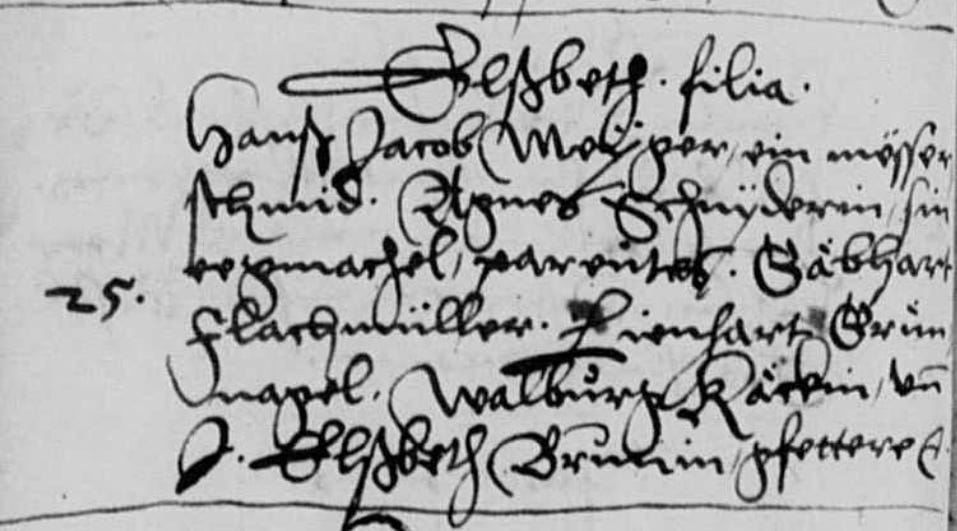 Elßbeth. filia.
Hanß Jacob Meÿger, ein mësser
schmid. Agnes Schnÿderin, sin
eegmachel, parentes. Gäbhart
25. Flachmüller. Lienhart Grün
nagel. Walbůrg Käckin, vn̄
J. Elßbeth Brunin, pfettere